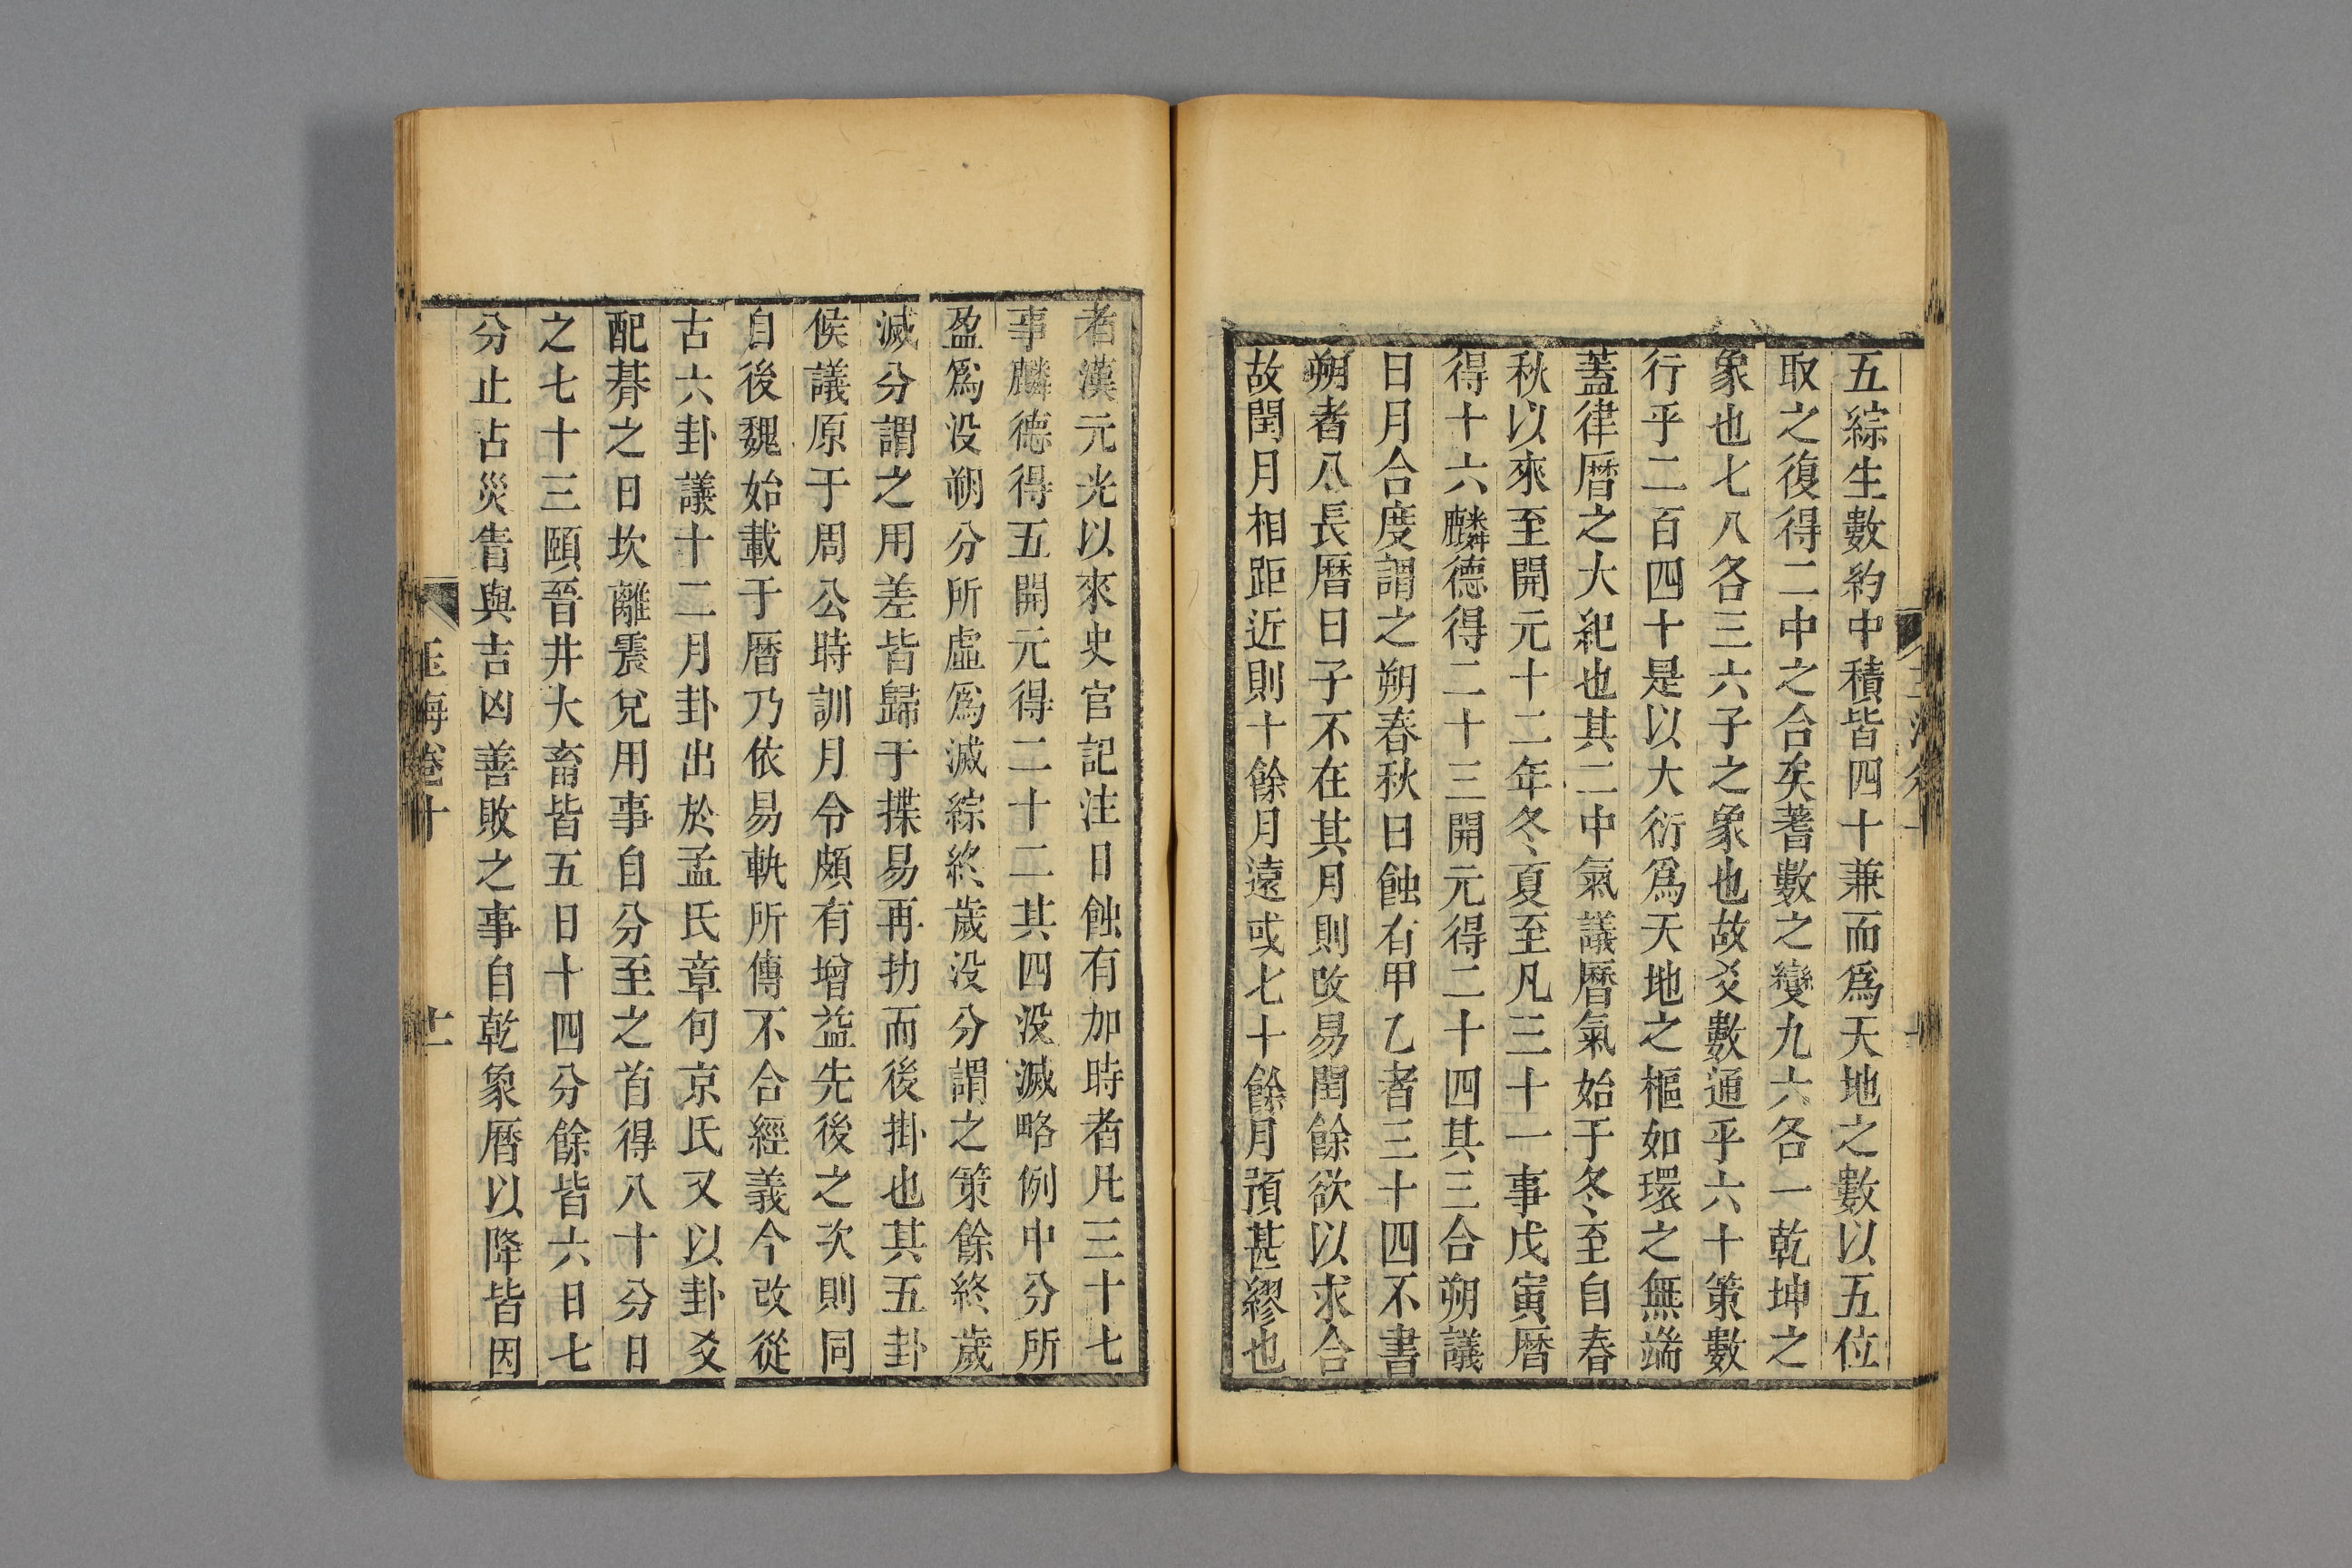 五綜生數約中積皆四十兼而爲天地之數以五位
取之復得二中之合矣蓍數之變九六各一乾坤之
象也七八各三六子之象也故爻數通乎六十策數
行乎二百四十是以大衍爲天地之樞如環之無端
蓋律曆之大紀也其二中氣議曆氣始于冬至自春
秋以來至開元十二年冬夏至凡三十一事戊寅曆
得十六麟德得二十三開元得二十四其三合朔議
日月合度謂之朔春秋日蝕有甲乙者三十四不書
朔者八長曆日子不在其月則改易閏餘欲以求合
故閏月相距近則十餘月遠或七十餘月預甚繆也
者漢元光以來史官記注日蝕有加時者凡三十七
事麟德得五開元得二十二其四没滅略例中分所
盈爲没朔分所虛爲滅綜終歲没分謂之策餘終歲
滅分謂之用差皆歸于揲易再扐而後掛也其五卦
候議原于周公時訓月令頗有增益先後之次則同
自後魏始載于曆乃依易軌所傳不合經義今改從
古六卦議十二月卦出於孟氏章句京氏又以卦爻
配朞之日坎離震兌用事自分至之首得八十分日
之七十三頤晉井大畜皆五日十四分餘皆六日七
分止占災眚與吉凶善敗之事自乾象曆以降皆因
玉海卷十
十一